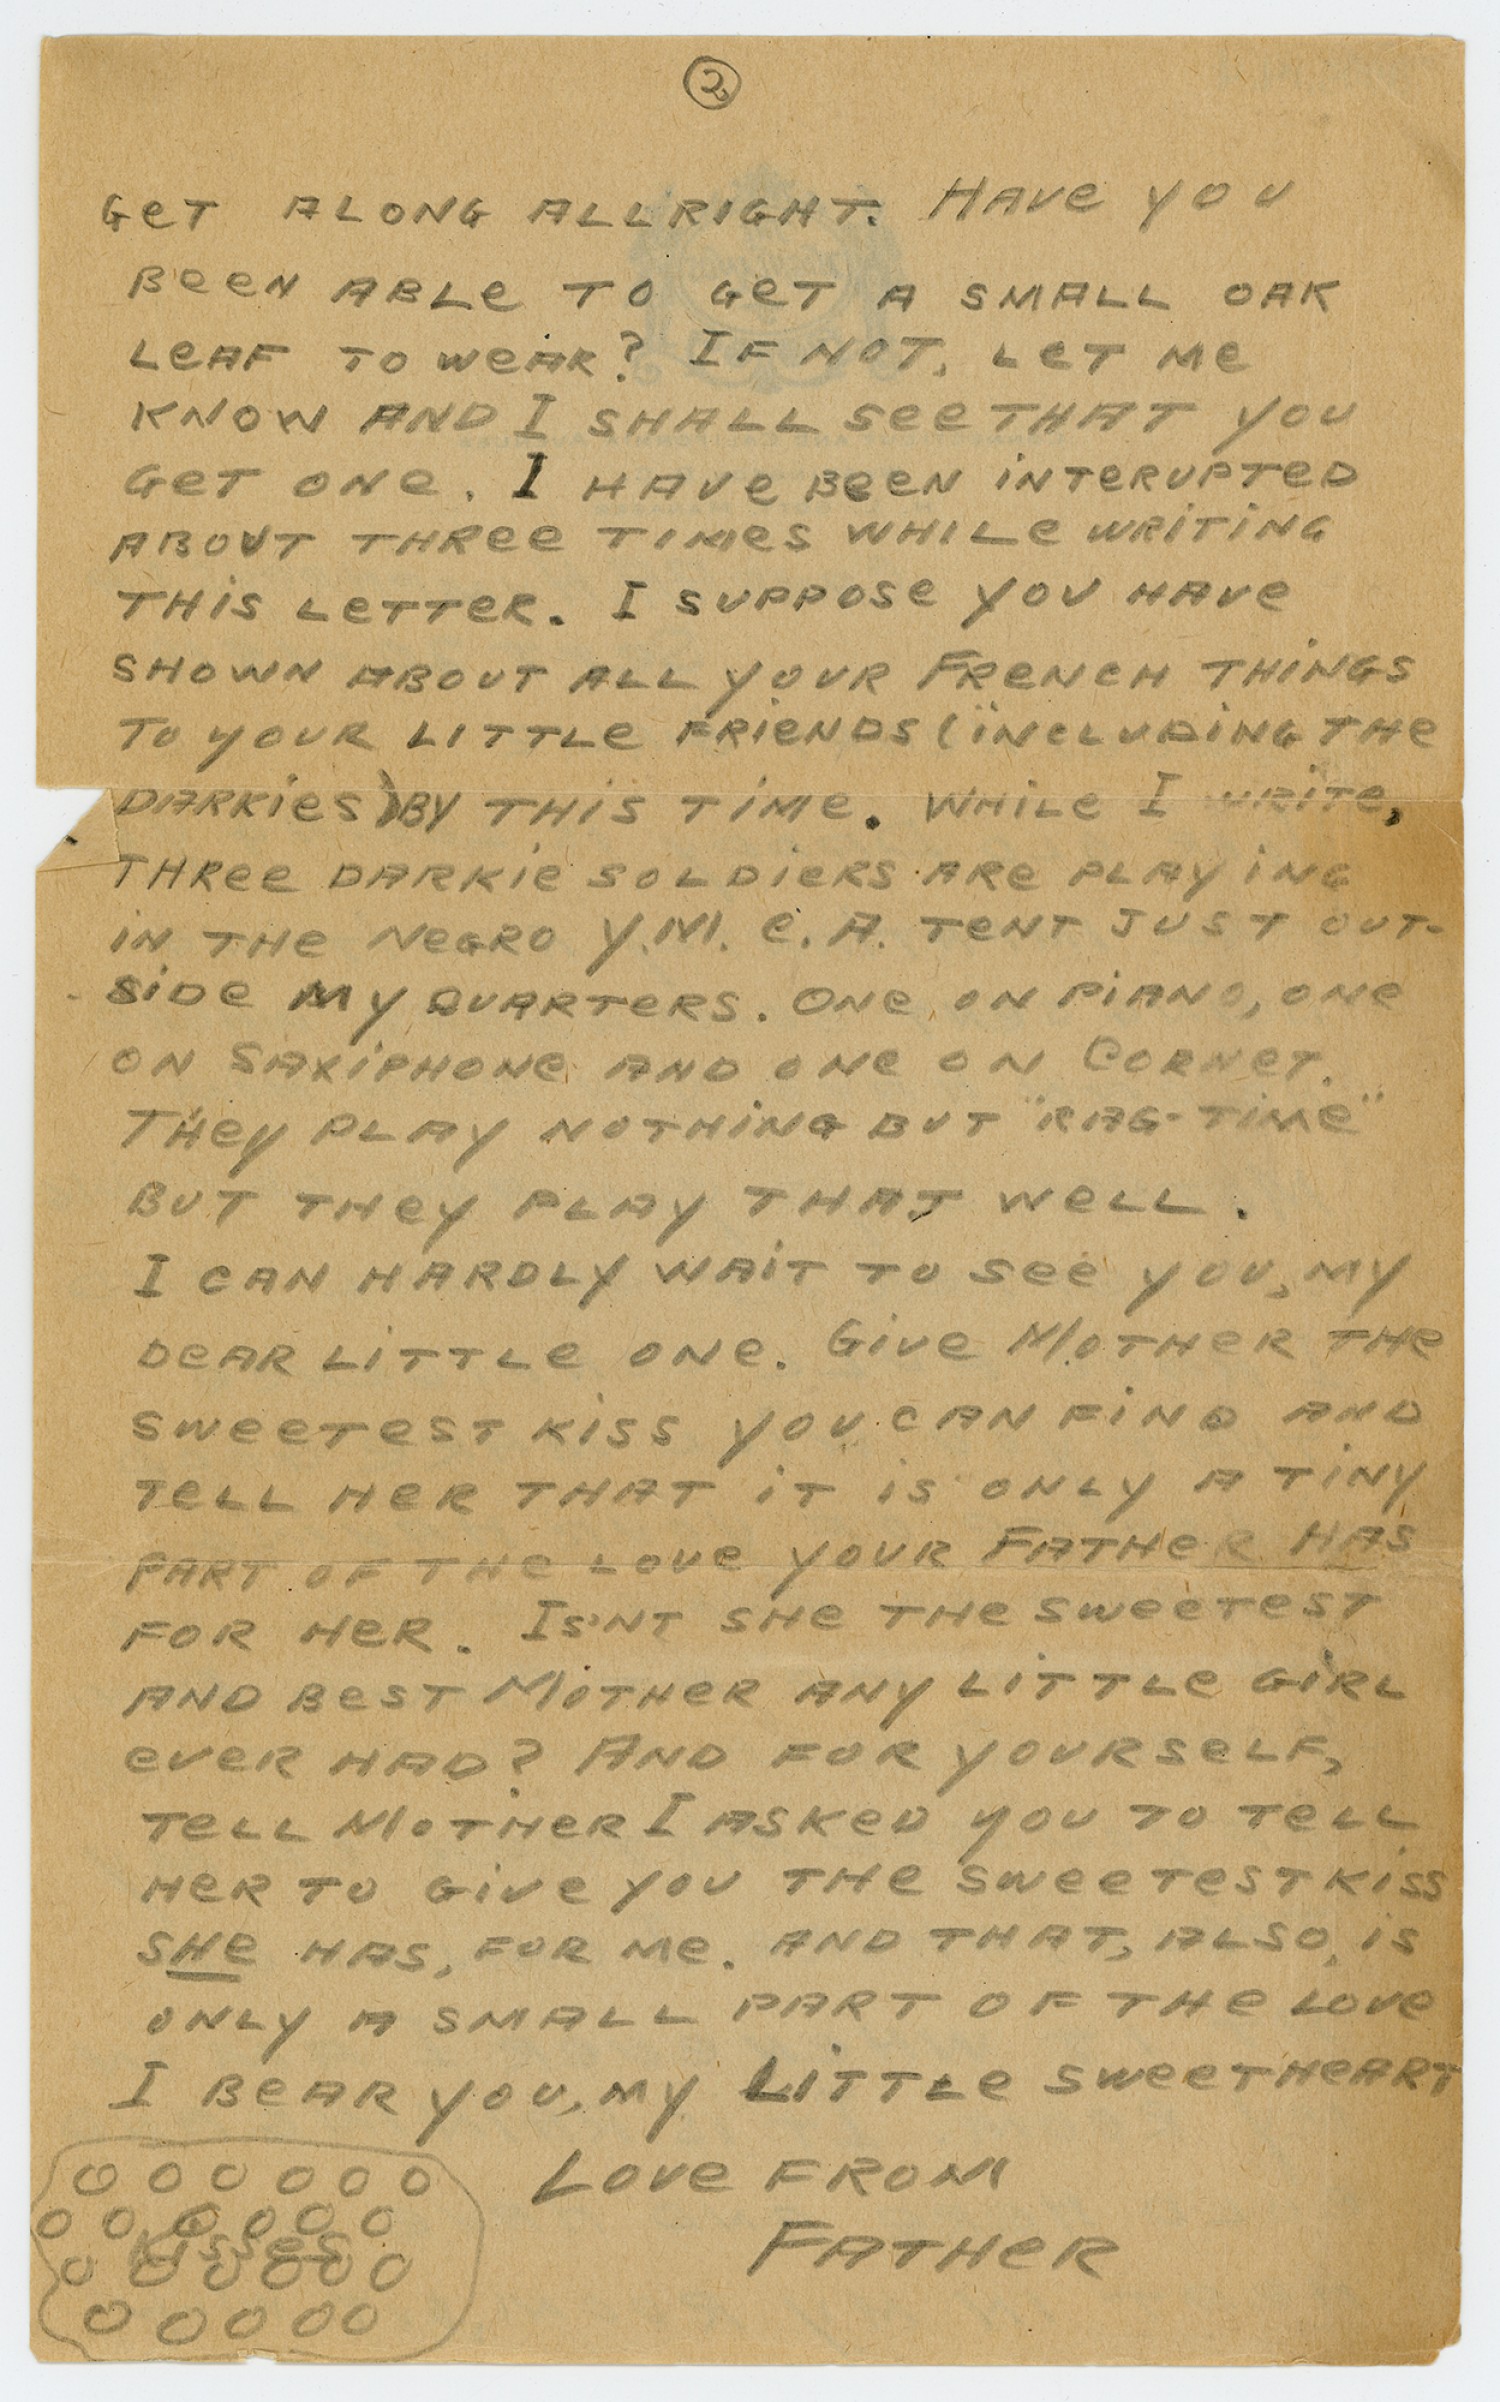 2
GeT ALONG ALLRIGHT. HAVe YOU
BeeN ABLe TO GeT A SMALL OAK
LeAF TO WeAR? IF NOT, LeT Me
KNOW AND I SHALL See THAT YOU
GeT ONe. I HAVe BeeN iNTeRUPTeD
ABOUT THRee TiMeS WHiLe WRiTiNG
THiS LeTTeR. I SUPPOSe YOU HAVe
SHOWN ABOUT ALL YOUR FReNCH THiNGS
TO YOUR LITTLe FRieNDS (iNCLUDiNG THe
DARKieS) BY THiS TiMe. WHiLe I WRiTe,
THRee DARKie SOLDieRS ARe PLAYiNG
iN THe NeGRO Y.M.C.A. TeNT JUST OUT-
SiDe MY QUARTeRS. ONe ON PiANO, ONe
ON SAXiPHONe AND ONe ON CORNeT.
THeY PLAY NOTHiNG BUT "RAG-TiMe"
BUT THeY PLAY THAT WeLL.
I CAN HARDLY WAiT TO See YOU, MY
DeAR LiTTLe ONe. GiVe MOTHeR THe
SWeeTeST KiSS YOU CAN FiND AND
TeLL HeR THAT iT iS ONLY A TiNY
PART OF THe LOVe YOUR FATHeR HAS
FOR HeR. IS'NT SHe THe SWeeTeST
AND BeST MOTHeR ANY LiTTLe GiRL
eVeR HAD? AND FOR YOURSeLF,
TeLL MOTHeR I ASKeD YOU TO TeLL
HeR TO GiVe YOU THe SWeeTeST KiSS
SHe HAS, FOR Me. AND THAT, ALSO, iS
ONLY A SMALL PART OF THe LOVe
I BeAR YOU, MY LiTTLe SWeeTHeART
LOVe FROM
FATHeR
O O O O O O
O O O O O O
KisseS
O O O O O O
O O O O O